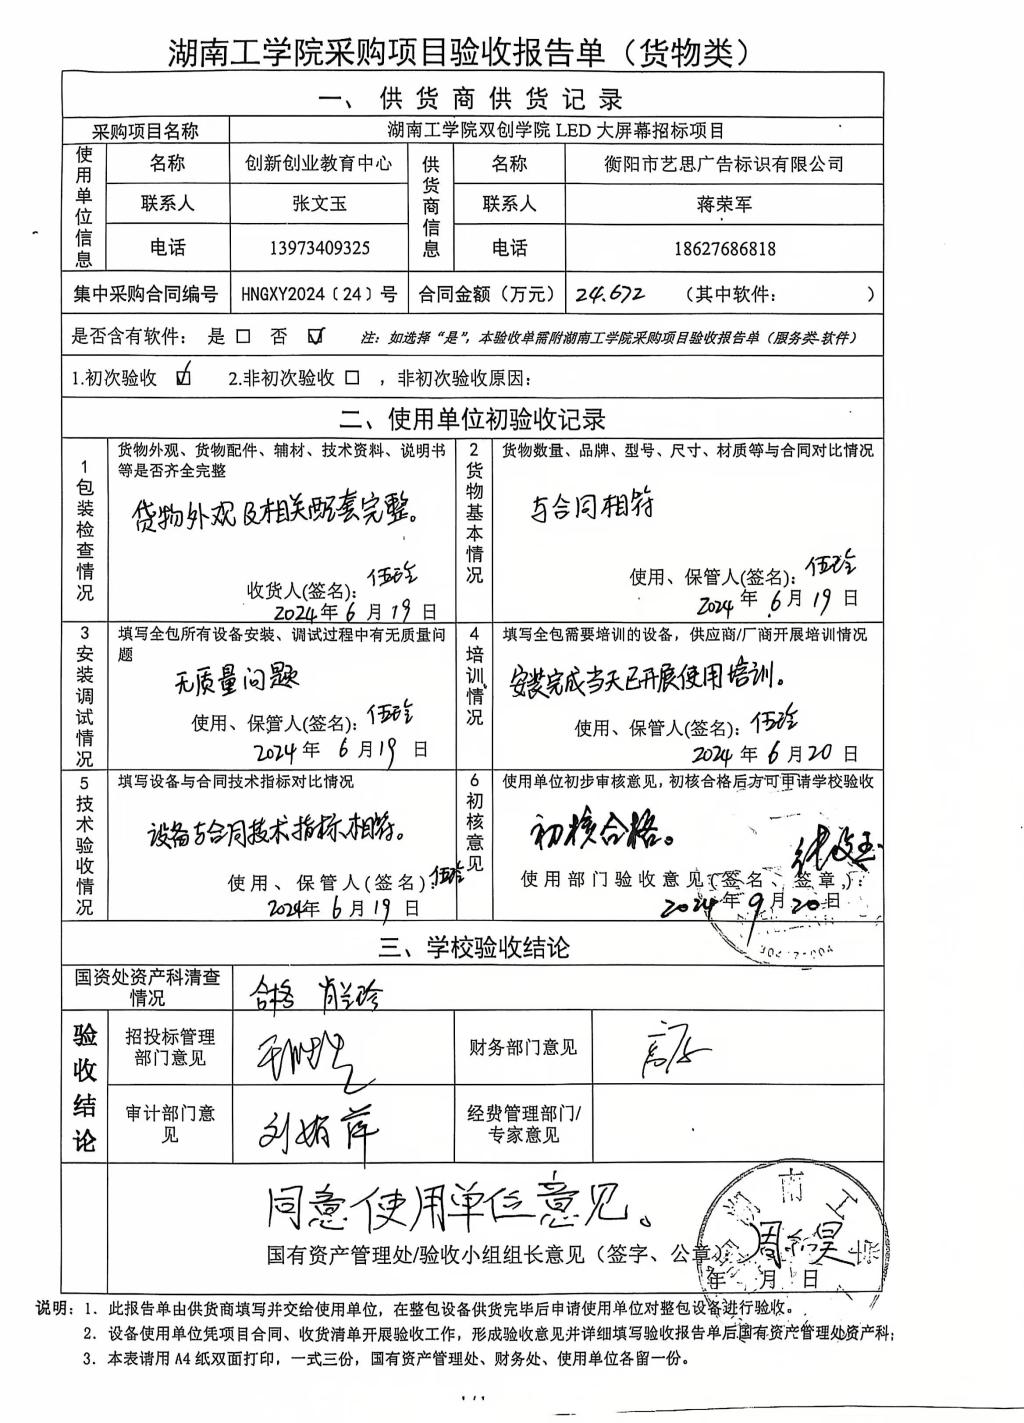 湖南工学院采购项目验收报告单（货物类）
一、供货商供货记录
采购项目名称 湖南工学院双创学院 LED 大屏幕招标项目
使用单位信息 名称 创新创业教育中心 供货商信息 名称 衡阳市艺思广告标识有限公司
联系人 张文玉 联系人 蒋荣军
电话 13973409325 电话 18627686818
集中采购合同编号 HNGXY2024〔24〕号 合同金额（万元） 24.672 （其中软件： ）
是否含有软件： 是 □ 否 ☑ 注：如选择“是”，本验收单需附湖南工学院采购项目验收报告单（服务类-软件）
1.初次验收 ☑ 2.非初次验收 □ ，非初次验收原因：
二、使用单位初验收记录
1包装检查情况
货物外观、货物配件、辅材、技术资料、说明书
等是否齐全完整
货物外观及相关配套完整。
收货人(签名)： 伍玲
2024年 6 月 19 日
2货物基本情况
货物数量、品牌、型号、尺寸、材质等与合同对比情况
与合同相符
使用、保管人(签名)： 伍玲
2024 年 6 月 19 日
3安装调试情况
填写全包所有设备安装、调试过程中有无质量问
题
无质量问题
使用、保管人(签名)： 伍玲
2024 年 6 月 19 日
4培训情况
填写全包需要培训的设备，供应商/厂商开展培训情况
安装完成当天已开展使用培训。
使用、保管人(签名)： 伍玲
2024 年 6 月 20 日
5技术验收情况
填写设备与合同技术指标对比情况
设备与合同技术指标相符。
使用、保管人(签名)： 伍玲
2024年 6 月 19 日
6初核意见
使用单位初步审核意见，初核合格后方可申请学校验收
初核合格。
张文玉
使用部门验收意见（签名、签章）：
2024 年 9 月 20 日
三、学校验收结论
国资处资产科清查
情况
合格 肖兰珍
验收结论
招投标管理
部门意见
财务部门意见
审计部门意
见
刘娟萍
经费管理部门/
专家意见
同意使用单位意见。
国有资产管理处/验收小组组长意见（签字、公章）
年 月 日
湖南工学
说明：1. 此报告单由供货商填写并交给使用单位，在整包设备供货完毕后申请使用单位对整包设备进行验收。
2. 设备使用单位凭项目合同、收货清单开展验收工作，形成验收意见并详细填写验收报告单后国有资产管理处资产科；
3. 本表请用 A4 纸双面打印，一式三份，国有资产管理处、财务处、使用单位各留一份。